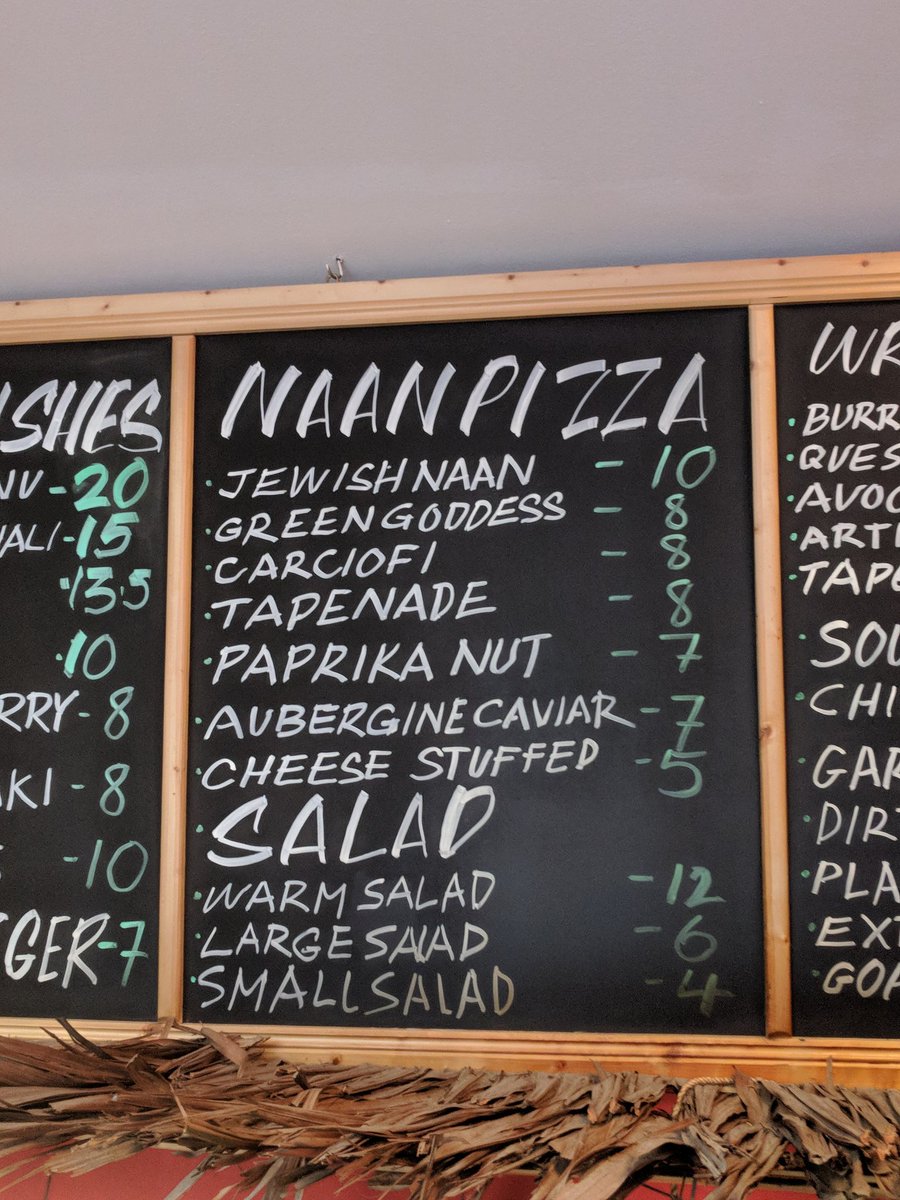 ISHES
NU -20
NALI -15
·13.5
·10
RRY- 8
AKI - 8
-10
GER-7
NAAN PIZZA
· JEWISH NAAN - 10
· GREEN GODDESS - 8
· CARCIOFI - 8
· TAPENADE - 8
· PAPRIKA NUT - 7
· AUBERGINE CAVIAR - 7
· CHEESE STUFFED - 5
· SALAD
· WARM SALAD - 12
· LARGE SALAD - 6
· SMALL SALAD - 4
WR
· BURR
· QUES
· AVOC
· ARTI
· TAPE
· SOU
· CHI
· GAR
· DIRT
· PLA
· EXT
· GOA